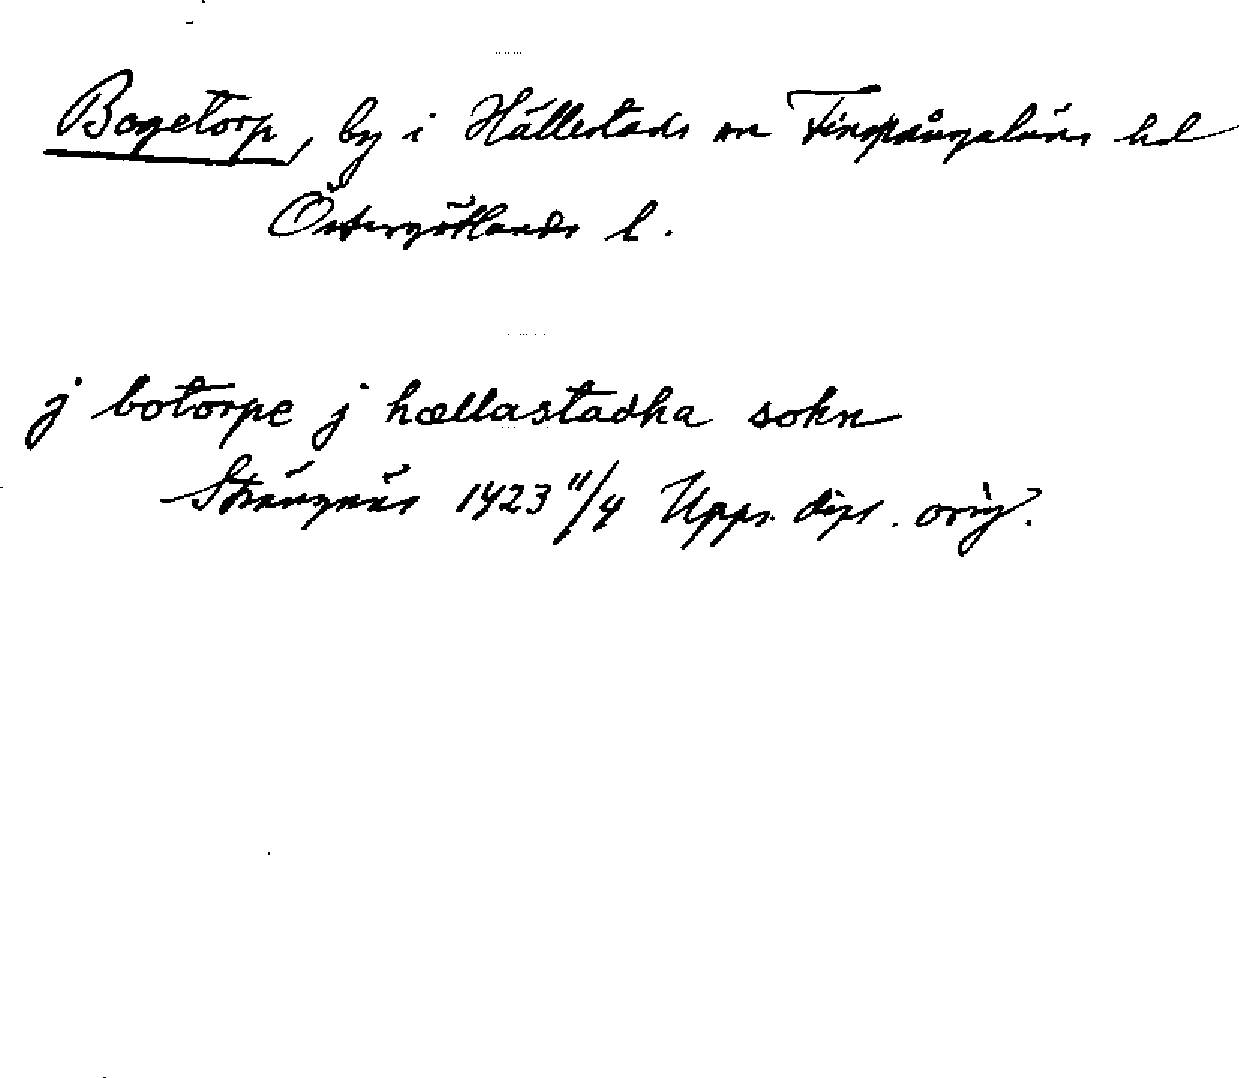 Bogetorp, by i Hällestads sn Finspångaläns hd
Östergötlands l.
j botorpe j hællastadha sokn
Strängnäs 1423 11/4 Upps. dipl. orig.